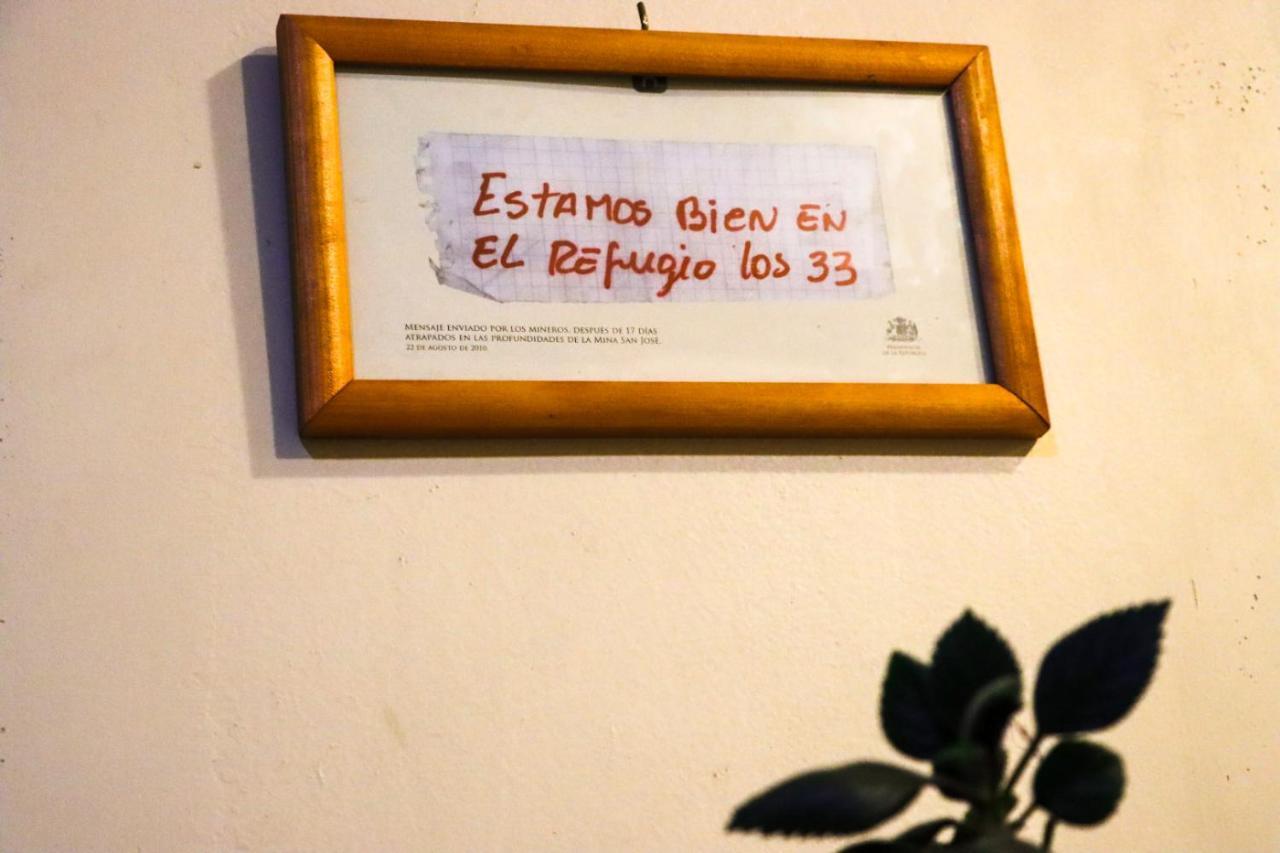 ESTAMOS BiEN EN
EL REfugio los 33
MENSAJE ENVIADO POR LOS MINEROS, DESPUÉS DE 17 DÍAS
ATRAPADOS EN LAS PROFUNDIDADES DE LA MINA SAN JOSÉ.
22 DE AGOSTO DE 2010.
PRESIDENCIA
DE LA REPÚBLICA